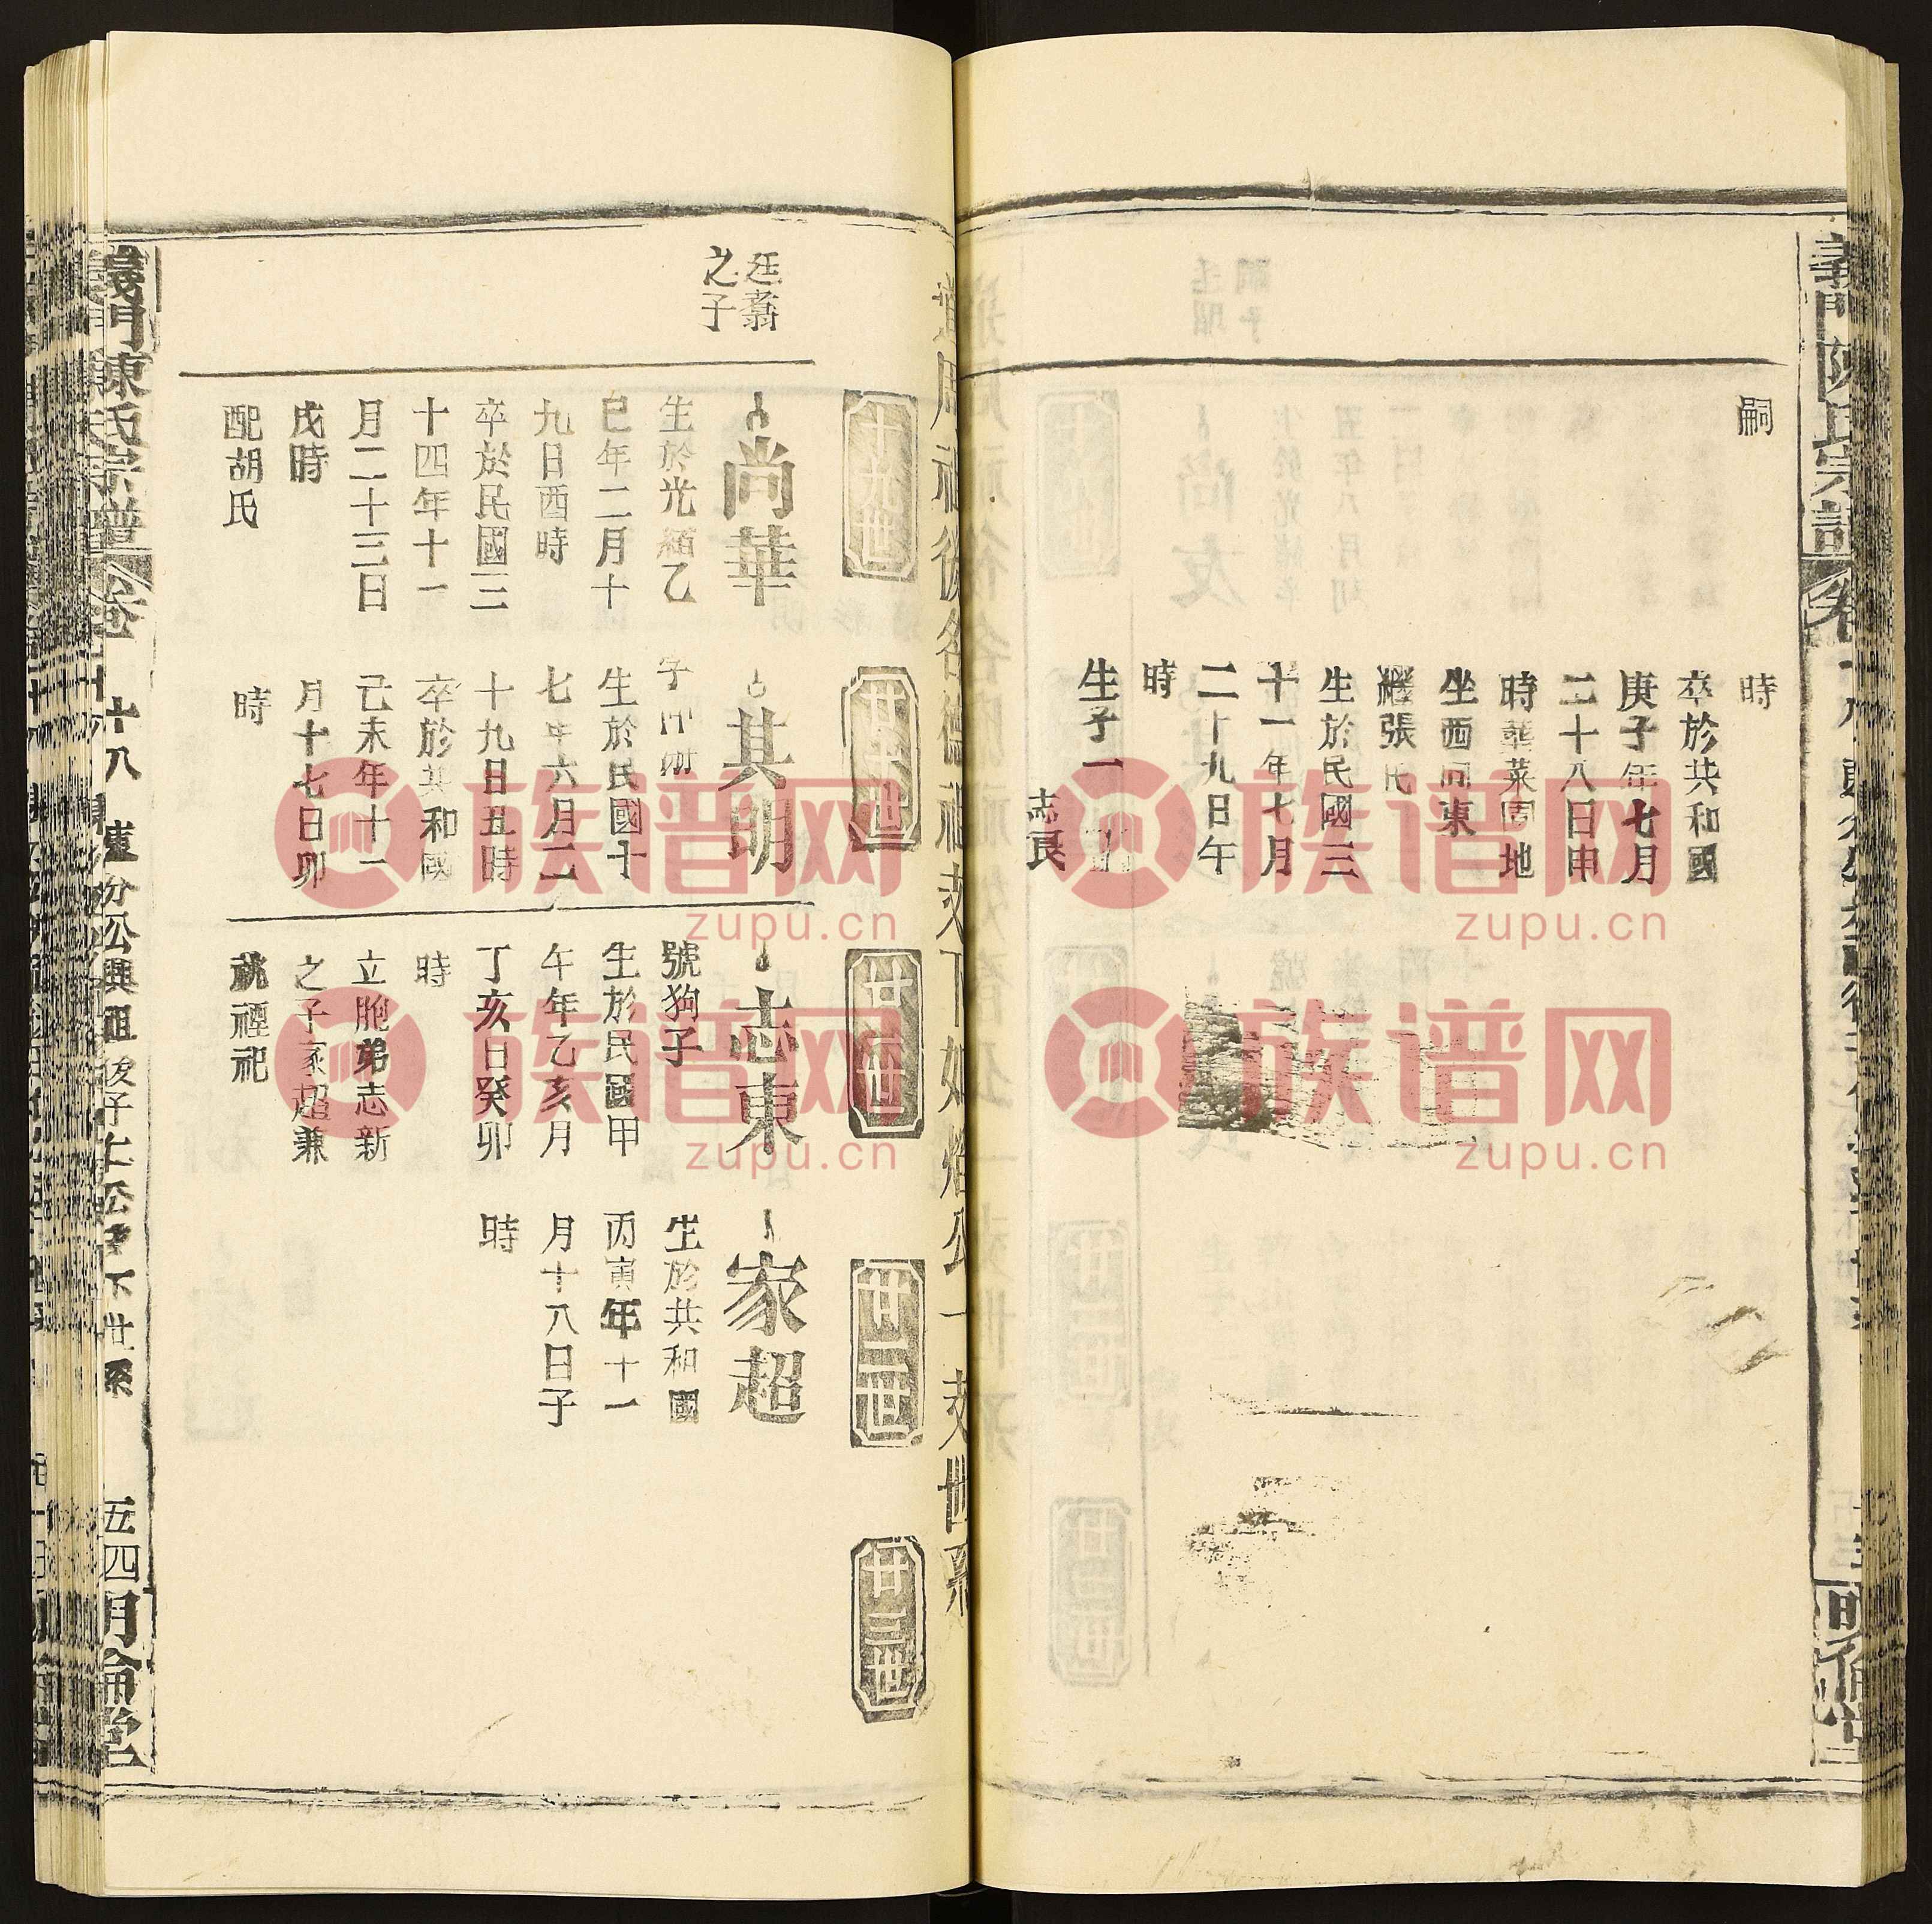 嗣
時
卒於共和國
庚子年七月
二十八日申
時葬菜園地
坐西向東
繼張氏
生於民國三
十一年七月
二十九日午
時
生子一
志良
十九世
廿世
廿一世
廿二世
廿三世
廷翥
之子
尚華
生於光緒乙
巳年二月十
九日酉時
卒於民國三
十四年十一
月二十三日
戌時
配胡氏
其明
生於民國十
七年六月二
十九日丑時
卒於共和國
己未年十二
月十七日卯
時
志東
號狗子
生於民國甲
午年乙亥月
丁亥日癸卯
時
立胞弟志新
之子家超兼
祧禋祀
家超
生於共和國
丙寅年十一
月十八日子
時
義門陳氏宗譜
五四
明倫堂
族谱网
zupu.cn
族谱网
zupu.cn
族谱网
zupu.cn
族谱网
zupu.cn